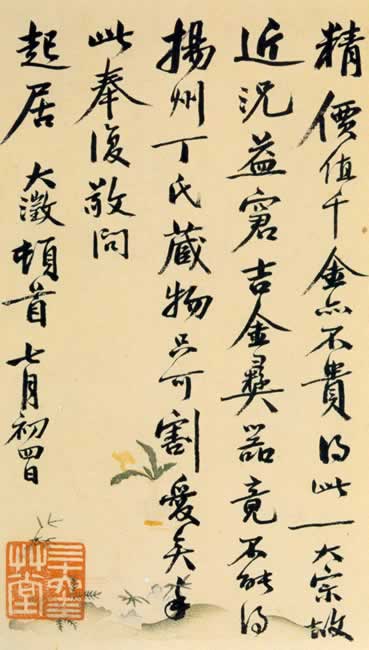 精價值千金亦不貴得此一大宗故
近況益窘吉金彝器竟不能得
揚州丁氏藏物只可割愛矣手
此奉復敬問
起居 大澂頓首 七月初四日
艸堂